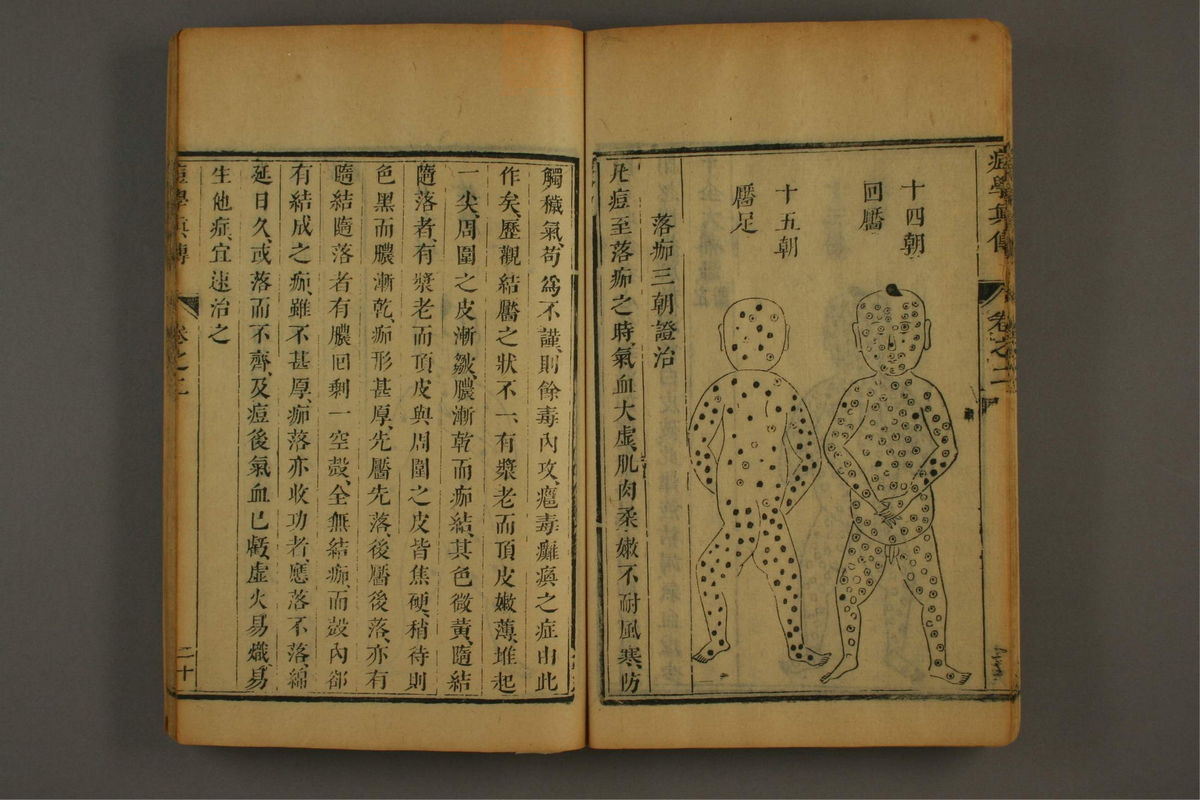 痘學真傳
卷之二
十四朝
回靨
十五朝
靨足
落痂三朝證治
凡痘至落痂之時、氣血大虛、肌肉柔嫩、不耐風寒、防
觸穢氣、苟爲不謹、則餘毒內攻、癰毒癱瘓之症由此
作矣、歷觀結靨之狀不一、有漿老而頂皮嫩薄、堆起
一尖、周圍之皮漸皺、膿漸乾而痂結、其色微黃、隨結
隨落者、有漿老而頂皮與周圍之皮皆焦硬、稍待則
色黑而膿漸乾、痂形甚厚、先靨先落、後靨後落、亦有
隨結隨落者、有膿回剩一空殼、全無結痂、而殼內卻
有結成之痂、雖不甚厚、痂落亦收功者、應落不落、綿
延日久、或落而不齊、及痘後氣血已虧、虛火易熾、易
生他症、宜速治之
痘學真傳
卷之二
二十